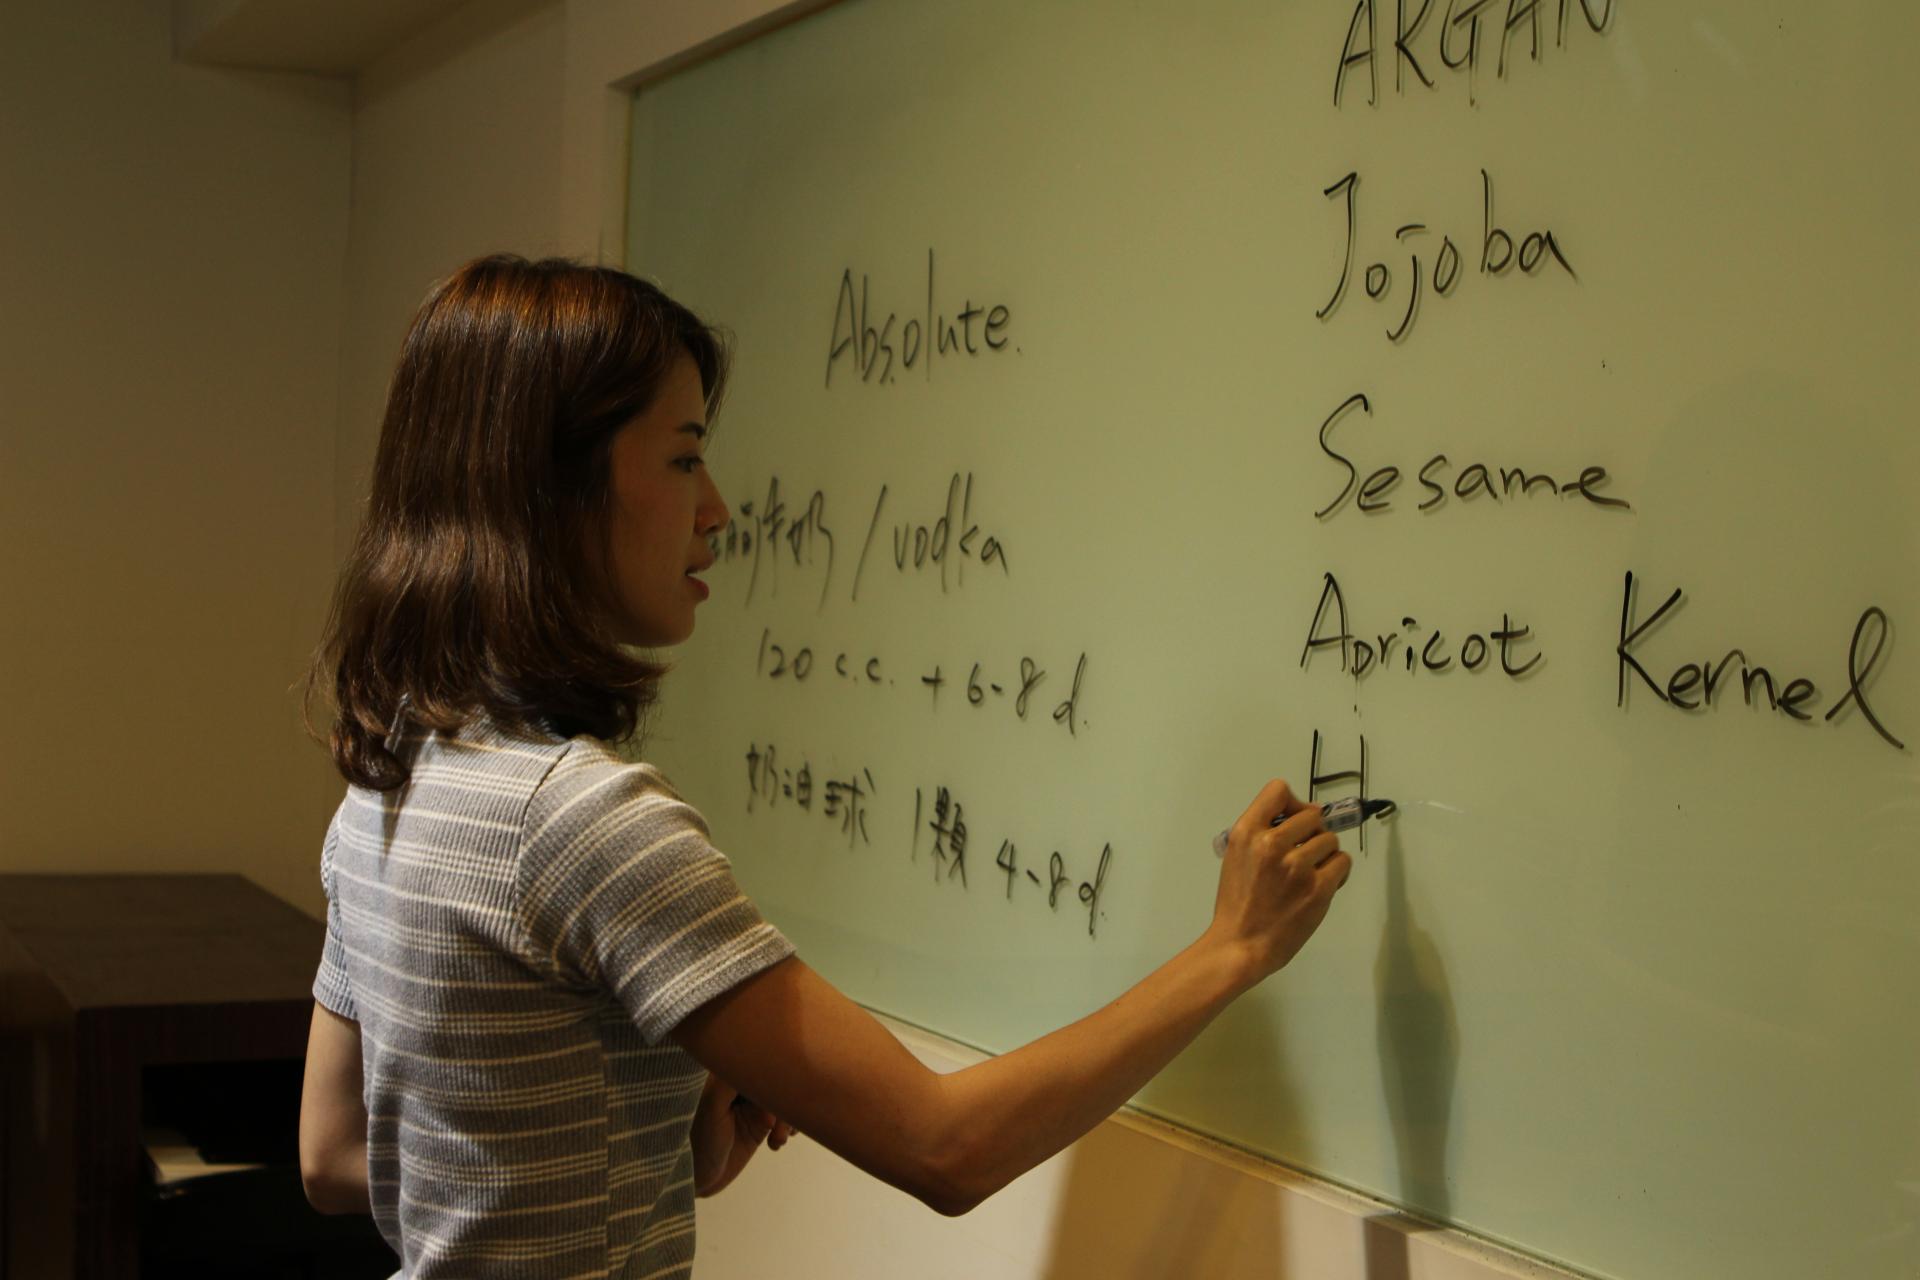 Absolute.
牛奶 / vodka
120 c.c. + 6-8 d.
奶油球 1顆 4-8 d.
ARGAN
Jojoba
Sesame
Apricot Kernel
H